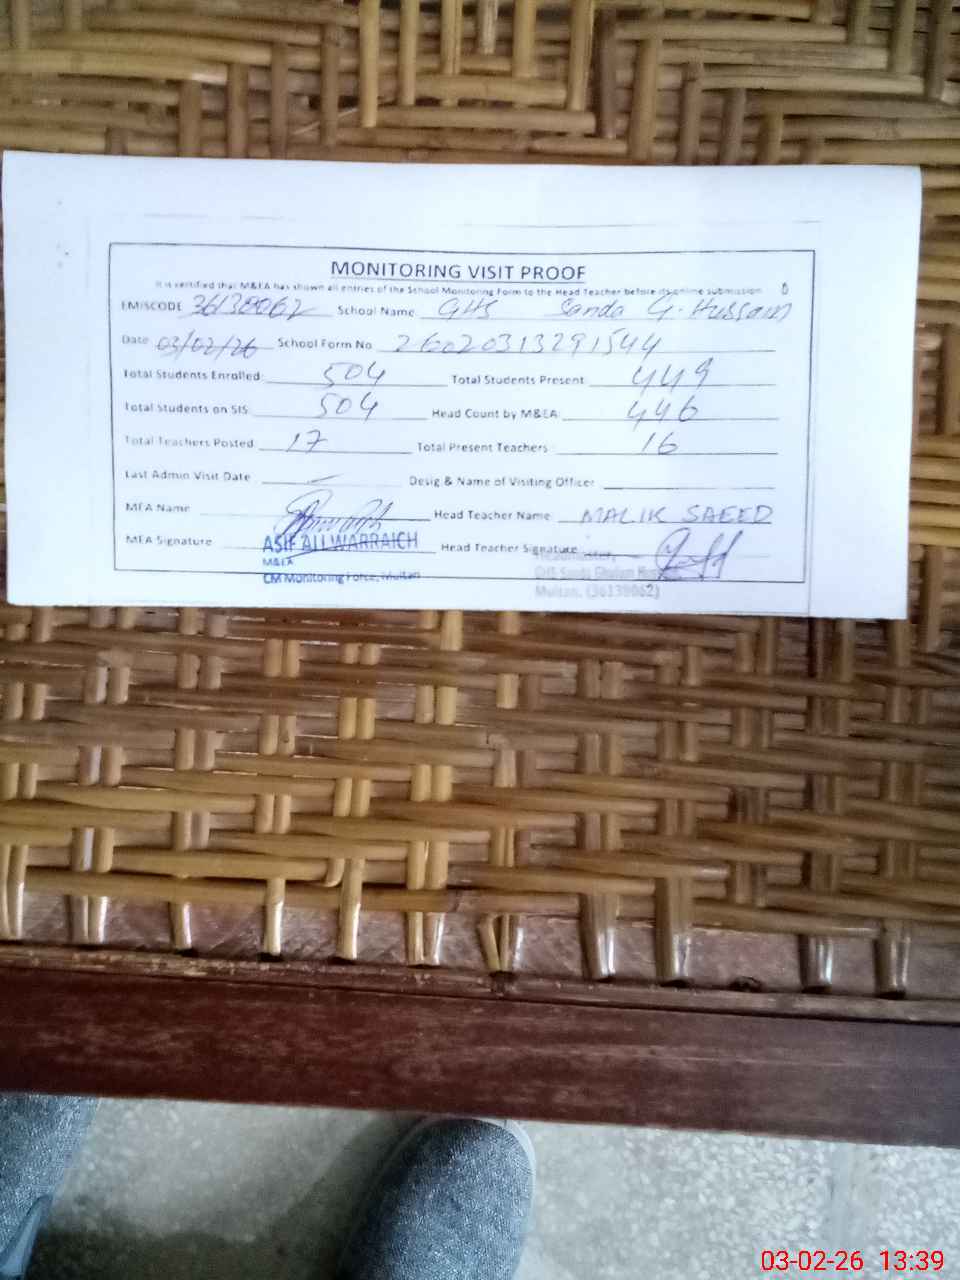 MONITORING VISIT PROOF
It is certified that M&EA has shown all entries of the School Monitoring Form to the Head Teacher before its online submission
EMISCODE 36130062 School Name GHS Sanda G. Hussain
Date 03/02/26 School Form No. 26020313291544
Total Students Enrolled: 504 Total Students Present: 449
Total Students on SIS: 504 Head Count by M&EA: 446
Total Teachers Posted: 17 Total Present Teachers: 16
Last Admin Visit Date — Desig & Name of Visiting Officer
MEA Name Head Teacher Name MALIK SAEED
MEA Signature Head Teacher Signature
ASIF ALI WARRAICH
M&EA
CM Monitoring Force, Multan
GHS Sanda Ghulam
Multan. (36130062)
03-02-26 13:39